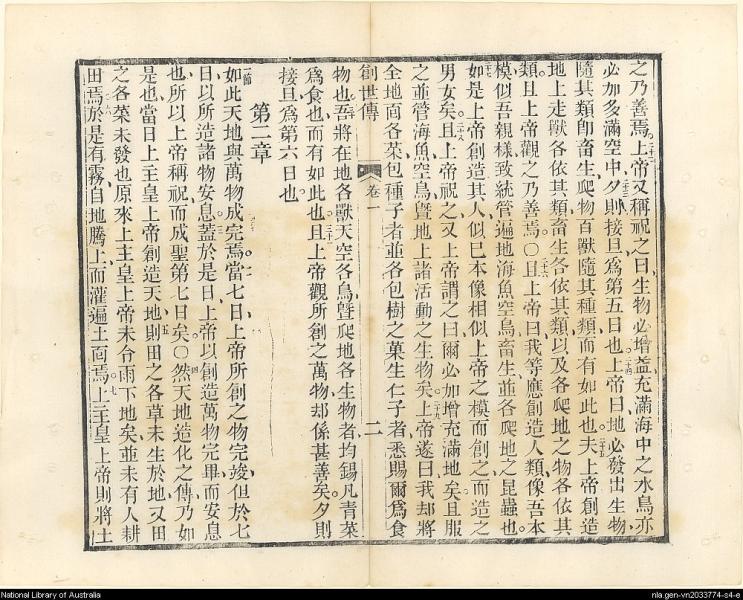 之乃善焉上帝又稱祝之曰生物必增益充滿海中之水鳥亦
必加多滿空中夕則接旦爲第五日也上帝曰地必發出生物
隨其類卽畜生爬物百獸隨其種類而有如此也夫上帝創造
地上走獸各依其類畜生各依其類以及各爬地之物各依其
類且上帝觀之乃善焉〇且上帝曰我等應創造人類像吾本
模似吾親樣致統管遍地海魚空鳥畜生並各爬地之昆蟲也
如是上帝創造其人似已本像相似上帝之模而創之而造之
男女矣且上帝祝之又上帝謂之曰爾必加增充滿地矣且服
之並管海魚空鳥曁地上諸活動之生物矣上帝遂曰我却將
全地面各菜包種子者並各包樹之菓生仁子者悉賜爾爲食
創世傳 卷一 二
物也吾將在地各獸天空各鳥曁爬地各生物者均錫凡青菜
爲食也而有如此也且上帝觀所創之萬物却係甚善矣夕則
接旦爲第六日也
第二章
一節
如此天地與萬物成完焉當七日上帝所創之物完竣但於七
日以所造諸物安息蓋於是日上帝以創造萬物完畢而安息
也所以上帝稱祝而成聖第七日矣〇然天地造化之傳乃如
是也當日上主皇上帝創造天地則田之各草未生於地又田
之各菜未發也原來上主皇上帝未令雨下地矣並未有人耕
田焉於是有霧自地騰上而灌遍土面焉上主皇上帝則將土
National Library of Australia
nla.gen-vn2033774-s4-e